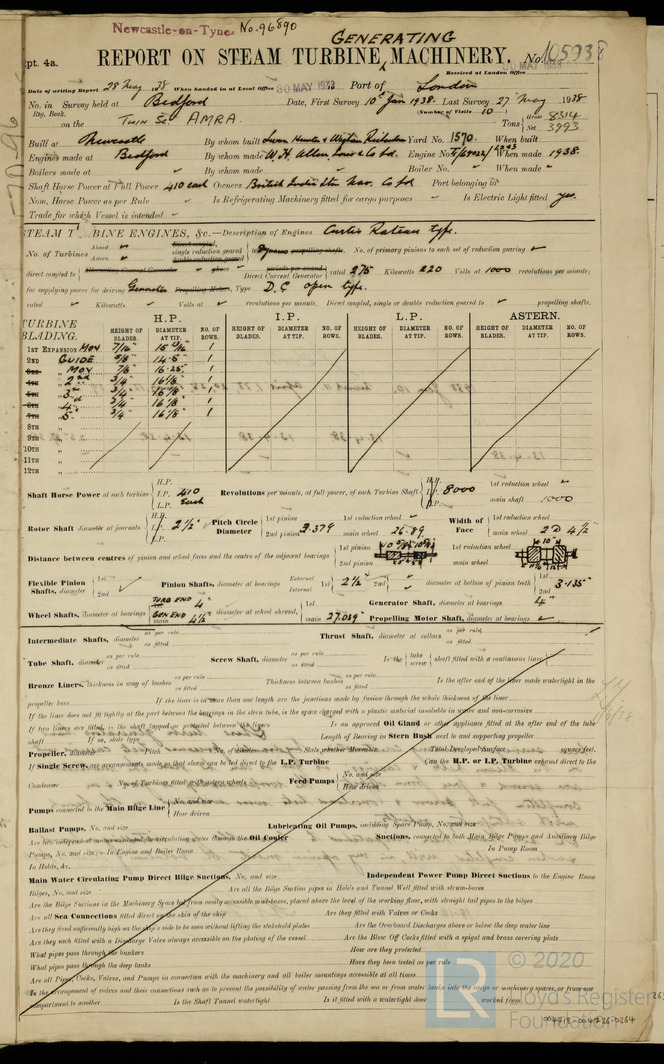 Newcastle-on-Tyne No. 96890
GENERATING
pt. 4a. REPORT ON STEAM TURBINE MACHINERY. No. 105938
Received at London Office
Date of writing Report 28 May 1938 When handed in at Local Office 30 MAY 1938 Port of London
No. in Survey held at Bedford Date, First Survey 10th Jan 1938. Last Survey 27 May 1938
Reg. Book. (Number of Visits 10
on the Twin Sc AMRA. Tons Gross 8314 Net 3993
Built at Newcastle By whom built Swan Hunter & Wigham Richardson Yard No. 1570. When built
Engines made at Bedford By whom made W.H. Allen, Sons & Co Ltd. Engine No. When made 1938.
Boilers made at By whom made Boiler No. When made
Shaft Horse Power at Full Power 410 each Owners British India Stm Nav. Co Ltd Port belonging to
Nom. Horse Power as per Rule Is Refrigerating Machinery fitted for cargo purposes Is Electric Light fitted yes.
Trade for which Vessel is intended
STEAM TURBINE ENGINES, &c.—Description of Engines Curtis Rateau type.
No. of Turbines Ahead Astern direct coupled, single reduction geared double reduction geared to Dynamo propelling shafts. No. of primary pinions to each set of reduction gearing
direct coupled to Alternating Current Generator phase periods per second Direct Current Generator rated 275 Kilowatts 220 Volts at 1000 revolutions per minute;
for supplying power for driving Generator Propelling Motors, Type D.C open type.
rated Kilowatts Volts at revolutions per minute. Direct coupled, single or double reduction geared to propelling shafts.
TURBINE BLADING. H.P. I.P. L.P. ASTERN.
HEIGHT OF BLADES. DIAMETER AT TIP. NO. OF ROWS. HEIGHT OF BLADES. DIAMETER AT TIP. NO. OF ROWS. HEIGHT OF BLADES. DIAMETER AT TIP. NO. OF ROWS. HEIGHT OF BLADES. DIAMETER AT TIP. NO. OF ROWS.
1ST EXPANSION MOV 7/16" 15 1
2ND " GUIDE 5/8" 14.5" 1
3RD " MOV 7/8" 16.25" 1
4TH " 2nd 3/4" 16 1/8" 1
5TH " 3rd 3/4" 16 1/8" 1
6TH " 4 3/4" 16 1/8" 1
7TH " 5 3/4" 16 1/8" 1
8TH "
9TH "
10TH "
11TH "
12TH "
Shaft Horse Power at each turbine H.P. I.P. 410 L.P. Each Revolutions per minute, at full power, of each Turbine Shaft H.P. I.P. 8000 L.P. 1st reduction wheel main shaft 1000
Rotor Shaft diameter at journals H.P. I.P. 2 1/2" L.P. Pitch Circle Diameter 1st pinion 2nd pinion 3.379 1st reduction wheel main wheel 26.89 Width of Face 1st reduction wheel main wheel 2 @ 4 1/2"
Distance between centres of pinion and wheel faces and the centre of the adjacent bearings 1st pinion 2nd pinion 1st reduction wheel main wheel
Flexible Pinion Shafts, diameter 1st 2nd Pinion Shafts, diameter at bearings External Internal 1st 2 1/2" 2nd diameter at bottom of pinion teeth 1st 2nd 3.135"
Wheel Shafts, diameter at bearings TURB END 4" GEN END main 4 1/2" diameter at wheel shroud, 1st main 27.039" Generator Shaft, diameter at bearings 4" Propelling Motor Shaft, diameter at bearings
Intermediate Shafts, diameter as per rule as fitted Thrust Shaft, diameter at collars as per rule as fitted
Tube Shaft, diameter as per rule as fitted Screw Shaft, diameter as per rule as fitted Is the tube screw shaft fitted with a continuous liner
Bronze Liners, thickness in way of bushes as per rule as fitted Thickness between bushes as per rule as fitted Is the after end of the liner made watertight in the
propeller boss If the liner is in more than one length are the junctions made by fusion through the whole thickness of the liner
If the liner does not fit tightly at the part between the bearings in the stern tube, is the space charged with a plastic material insoluble in water and non-corrosive
If two liners are fitted, is the shaft lapped or protected between the liners Is an approved Oil Gland or other appliance fitted at the after end of the tube
shaft If so, state type Length of Bearing in Stern Bush next to and supporting propeller
Propeller, diameter Pitch No. of Blades State whether Moveable Total Developed Surface square feet.
If Single Screw, are arrangements made so that steam can be led direct to the L.P. Turbine Can the H.P. or I.P. Turbine exhaust direct to the
Condenser No. of Turbines fitted with astern wheels Feed Pumps No. and size How driven
Pumps connected to the Main Bilge Line No. and size How driven
Ballast Pumps, No. and size Lubricating Oil Pumps, including Spare Pump, No. and size
Are two independent means arranged for circulating water through the Oil Cooler Suctions, connected to both Main Bilge Pumps and Auxiliary Bilge
Pumps, No. and size:—In Engine and Boiler Room In Pump Room
In Holds, &c.
Main Water Circulating Pump Direct Bilge Suctions, No. and size Independent Power Pump Direct Suctions to the Engine Room
Bilges, No. and size Are all the Bilge Suction pipes in Holds and Tunnel Well fitted with strum-boxes
Are the Bilge Suctions in the Machinery Space led from easily accessible mud-boxes, placed above the level of the working floor, with straight tail pipes to the bilges
Are all Sea Connections fitted direct on the skin of the ship Are they fitted with Valves or Cocks
Are they fixed sufficiently high on the ship's side to be seen without lifting the stokehold plates Are the Overboard Discharges above or below the deep water line
Are they each fitted with a Discharge Valve always accessible on the plating of the vessel Are the Blow Off Cocks with a spigot and brass covering plate
What pipes pass through the bunkers How are they protected
What pipes pass through the deep tanks Have they been tested as per rule
Are all Pipes, Cocks, Valves, and Pumps in connection with the machinery and all boiler mountings accessible at all times
Is the arrangement of valves and their connections such as to prevent the possibility of water passing from the sea or from water tanks into the cargo or machinery spaces, or from one
compartment to another Is the Shaft Tunnel watertight Is it fitted with a watertight door worked from
LR © 2020 Lloyd's Register Foundation
004713-004726-0264